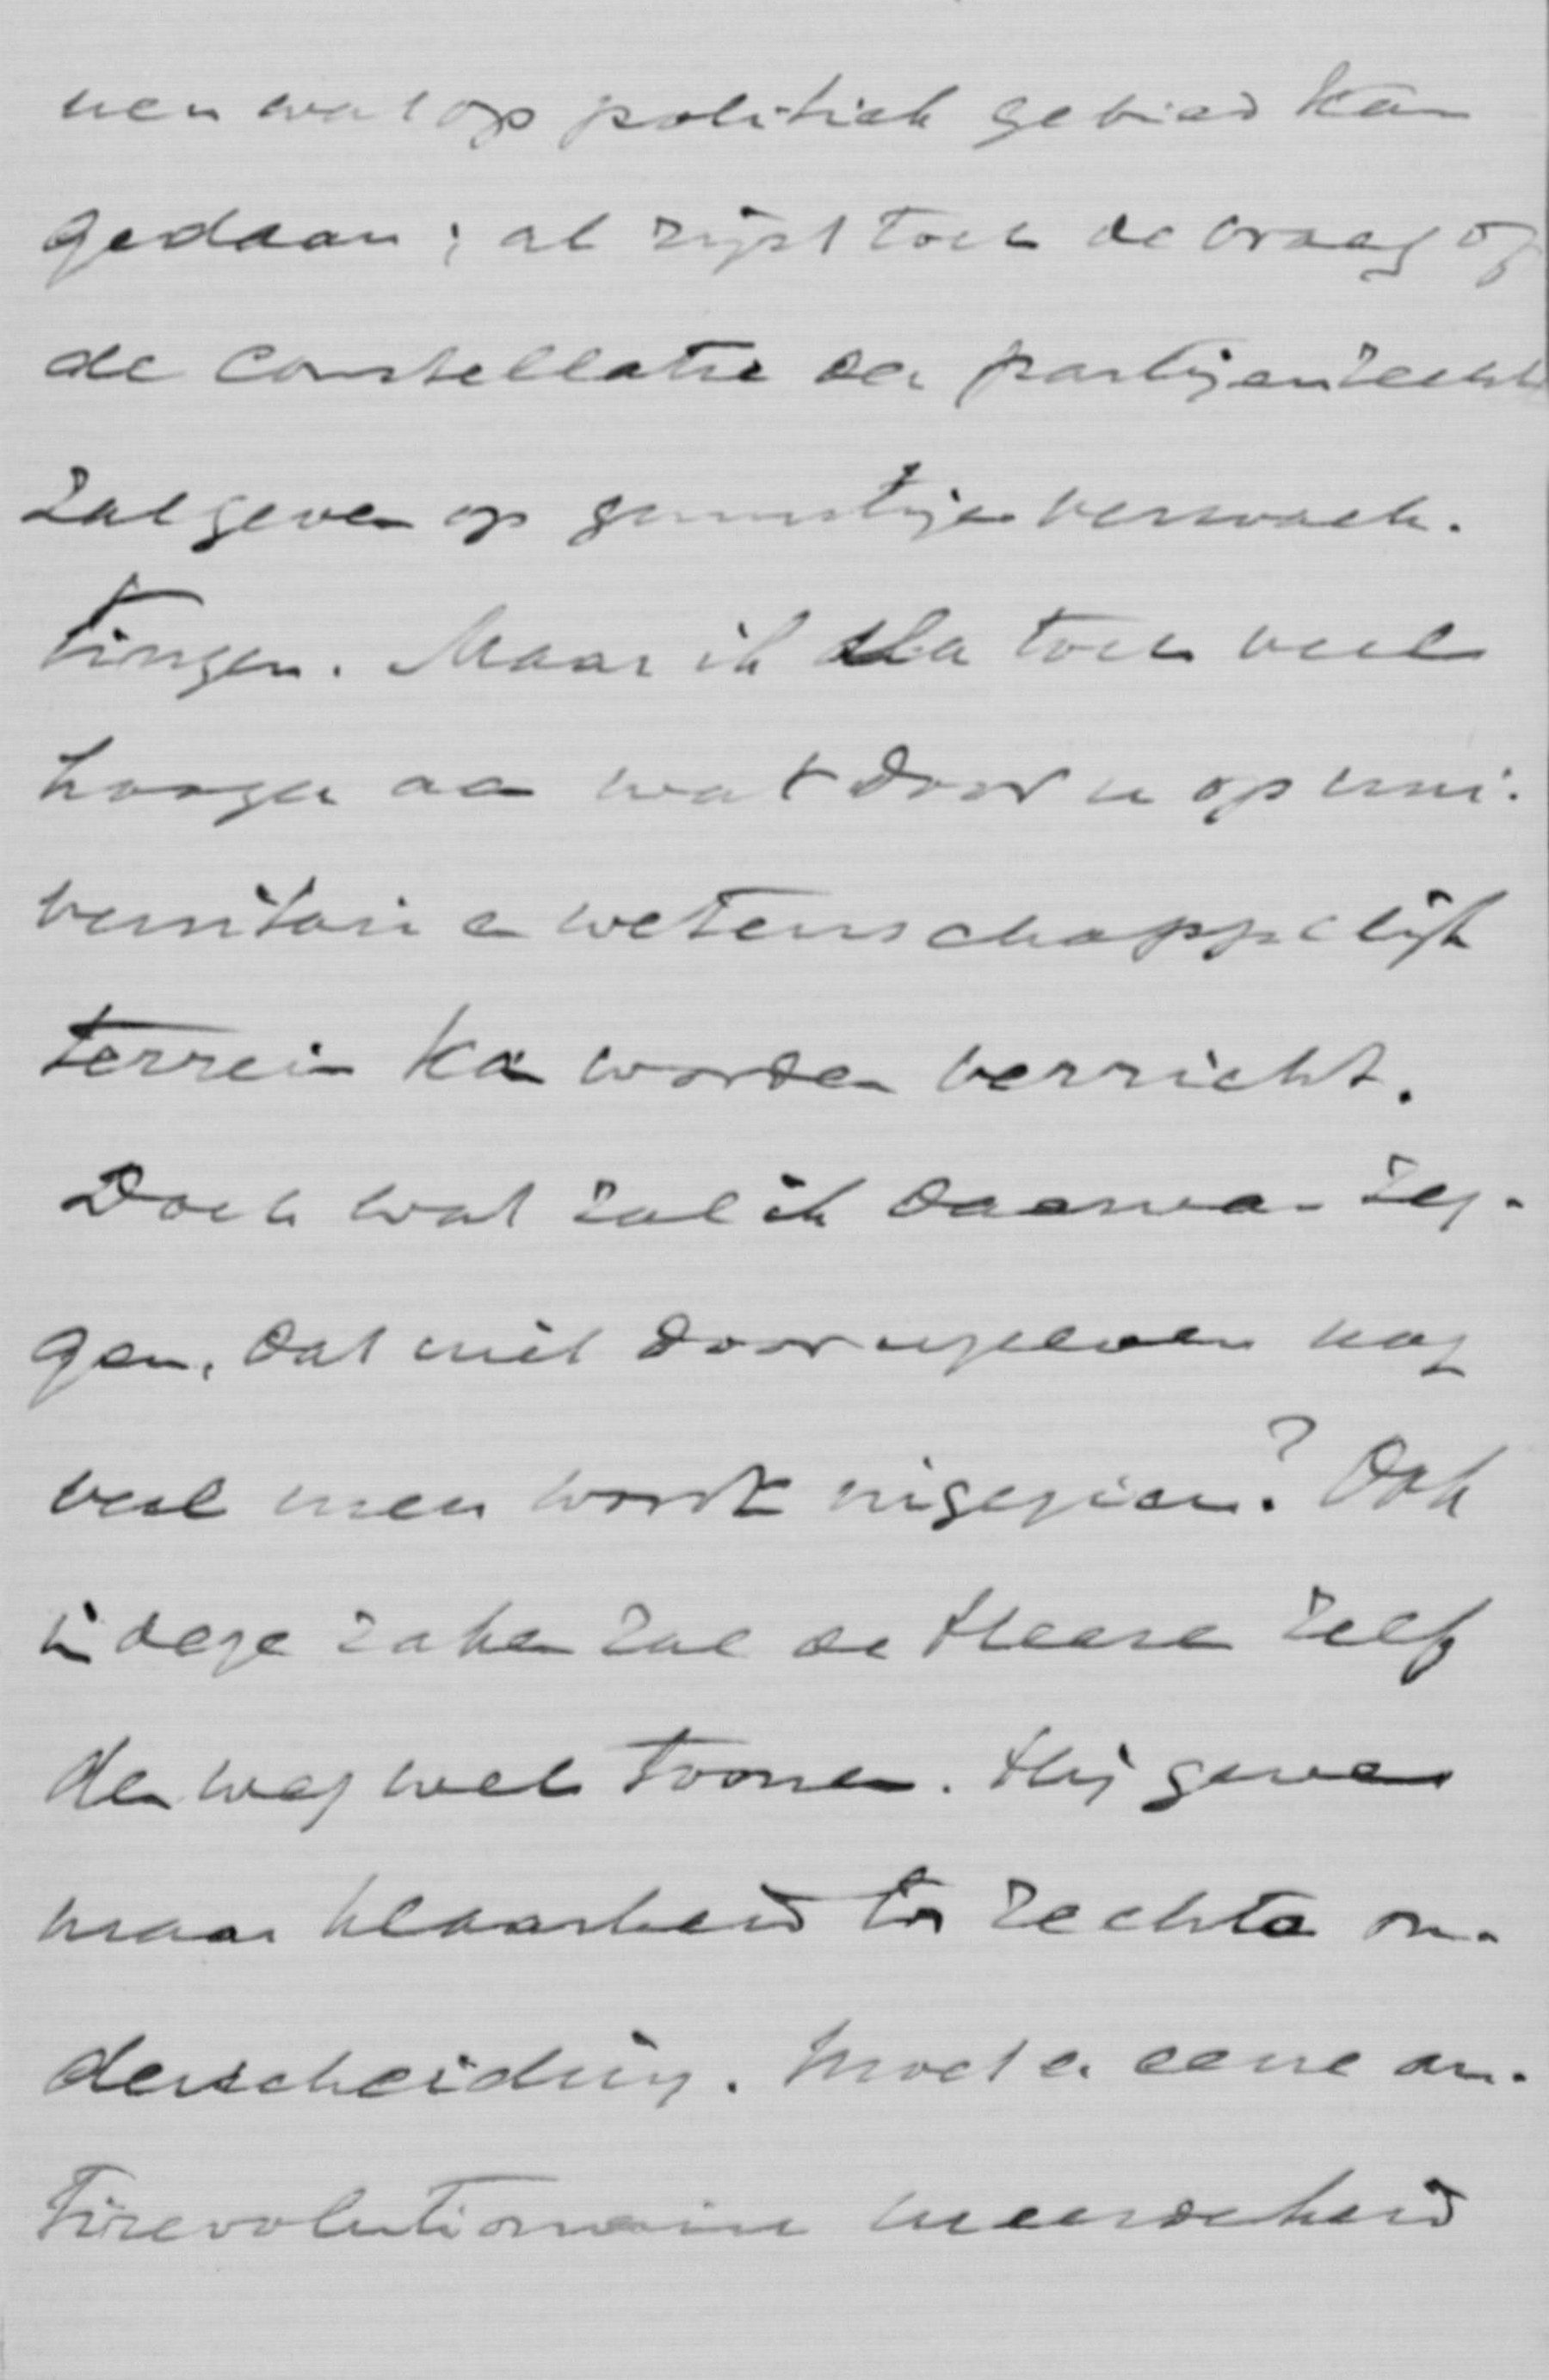 nen wat op politiek gebied kan
gedaan; al rijst toch de vraag of
de constellatie der partijen recht
zal geven op gunstige verwach-
tingen. Maar ik sla toch veel
hooger aan wat door u op uni-
versitair en wetenschappelijk
terrein kan worden verricht.
Doch wat zal ik daarvan zeg-
gen, dat niet door uzelven nog
veel meer wordt ingezien? Ook
in deze zaken zal de Heere zelf
den weg wel toonen. Hij geve
maar klaarheid tot rechte on-
derscheiding. Moet er eene an-
tirevolutionaire meerderheid